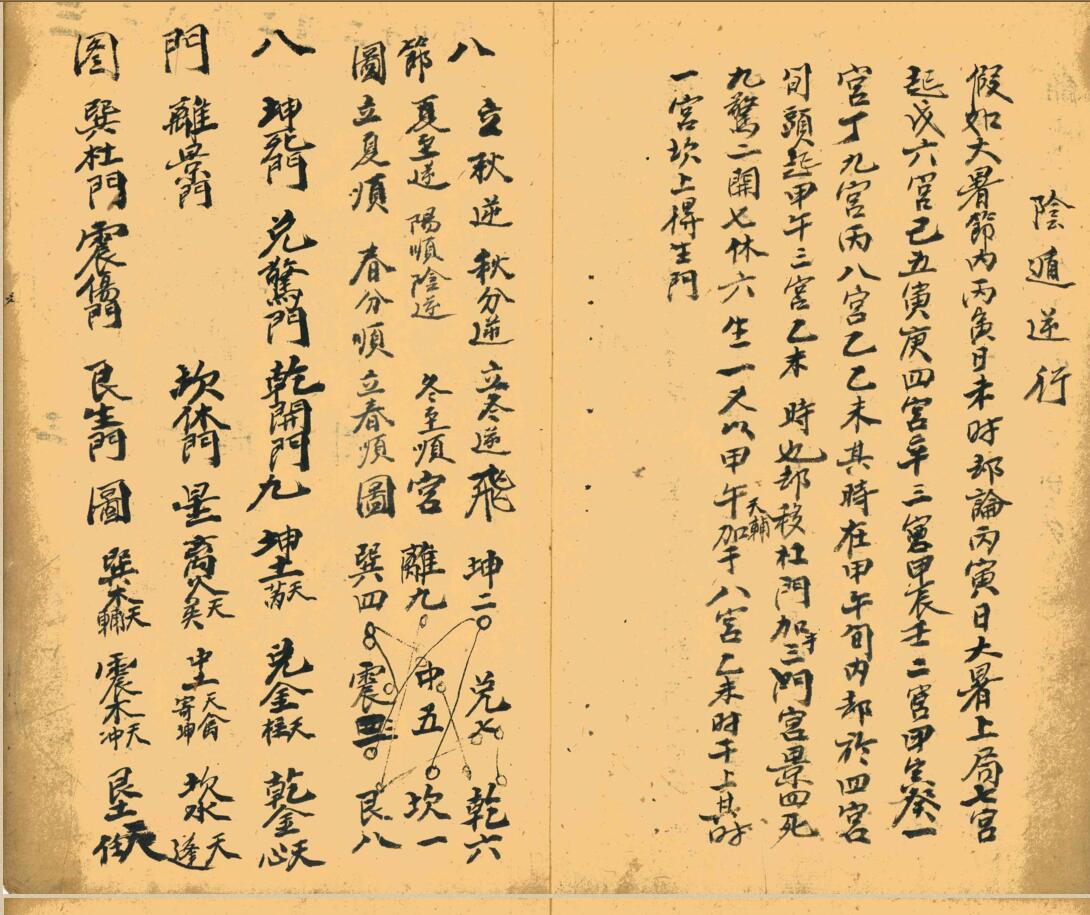 陰遁逆行
假如大暑節內丙寅日未时却論丙寅日大暑上局七宮
起戊六宮己五寅庚四宮辛三宮甲辰壬二宮甲寅癸一
宮丁九宮丙八宮乙乙未其時在甲午旬內却於四宮
旬頭起甲午三宮乙未時也却移杜門加于三門宮景四死
九驚二開七休六生一又以甲午天輔加于八宮乙未时干上其时
一宮坎上得生門
八節圖
立秋逆 秋分逆 立冬逆
夏至逆 陽順陰逆 冬至順
立夏順 春分順 立春順
飛宮圖
坤二 兌七 乾六
離九 中五 坎一
巽四 震三 艮八
八門圖
坤死門 兌驚門 乾開門
離景門 坎休門
巽杜門 震傷門 艮生門
九星圖
坤土天芮 兌金天柱 乾金天心
离火天英 中天禽寄坤 坎水天逢
巽木天輔 震木天冲 艮土天任